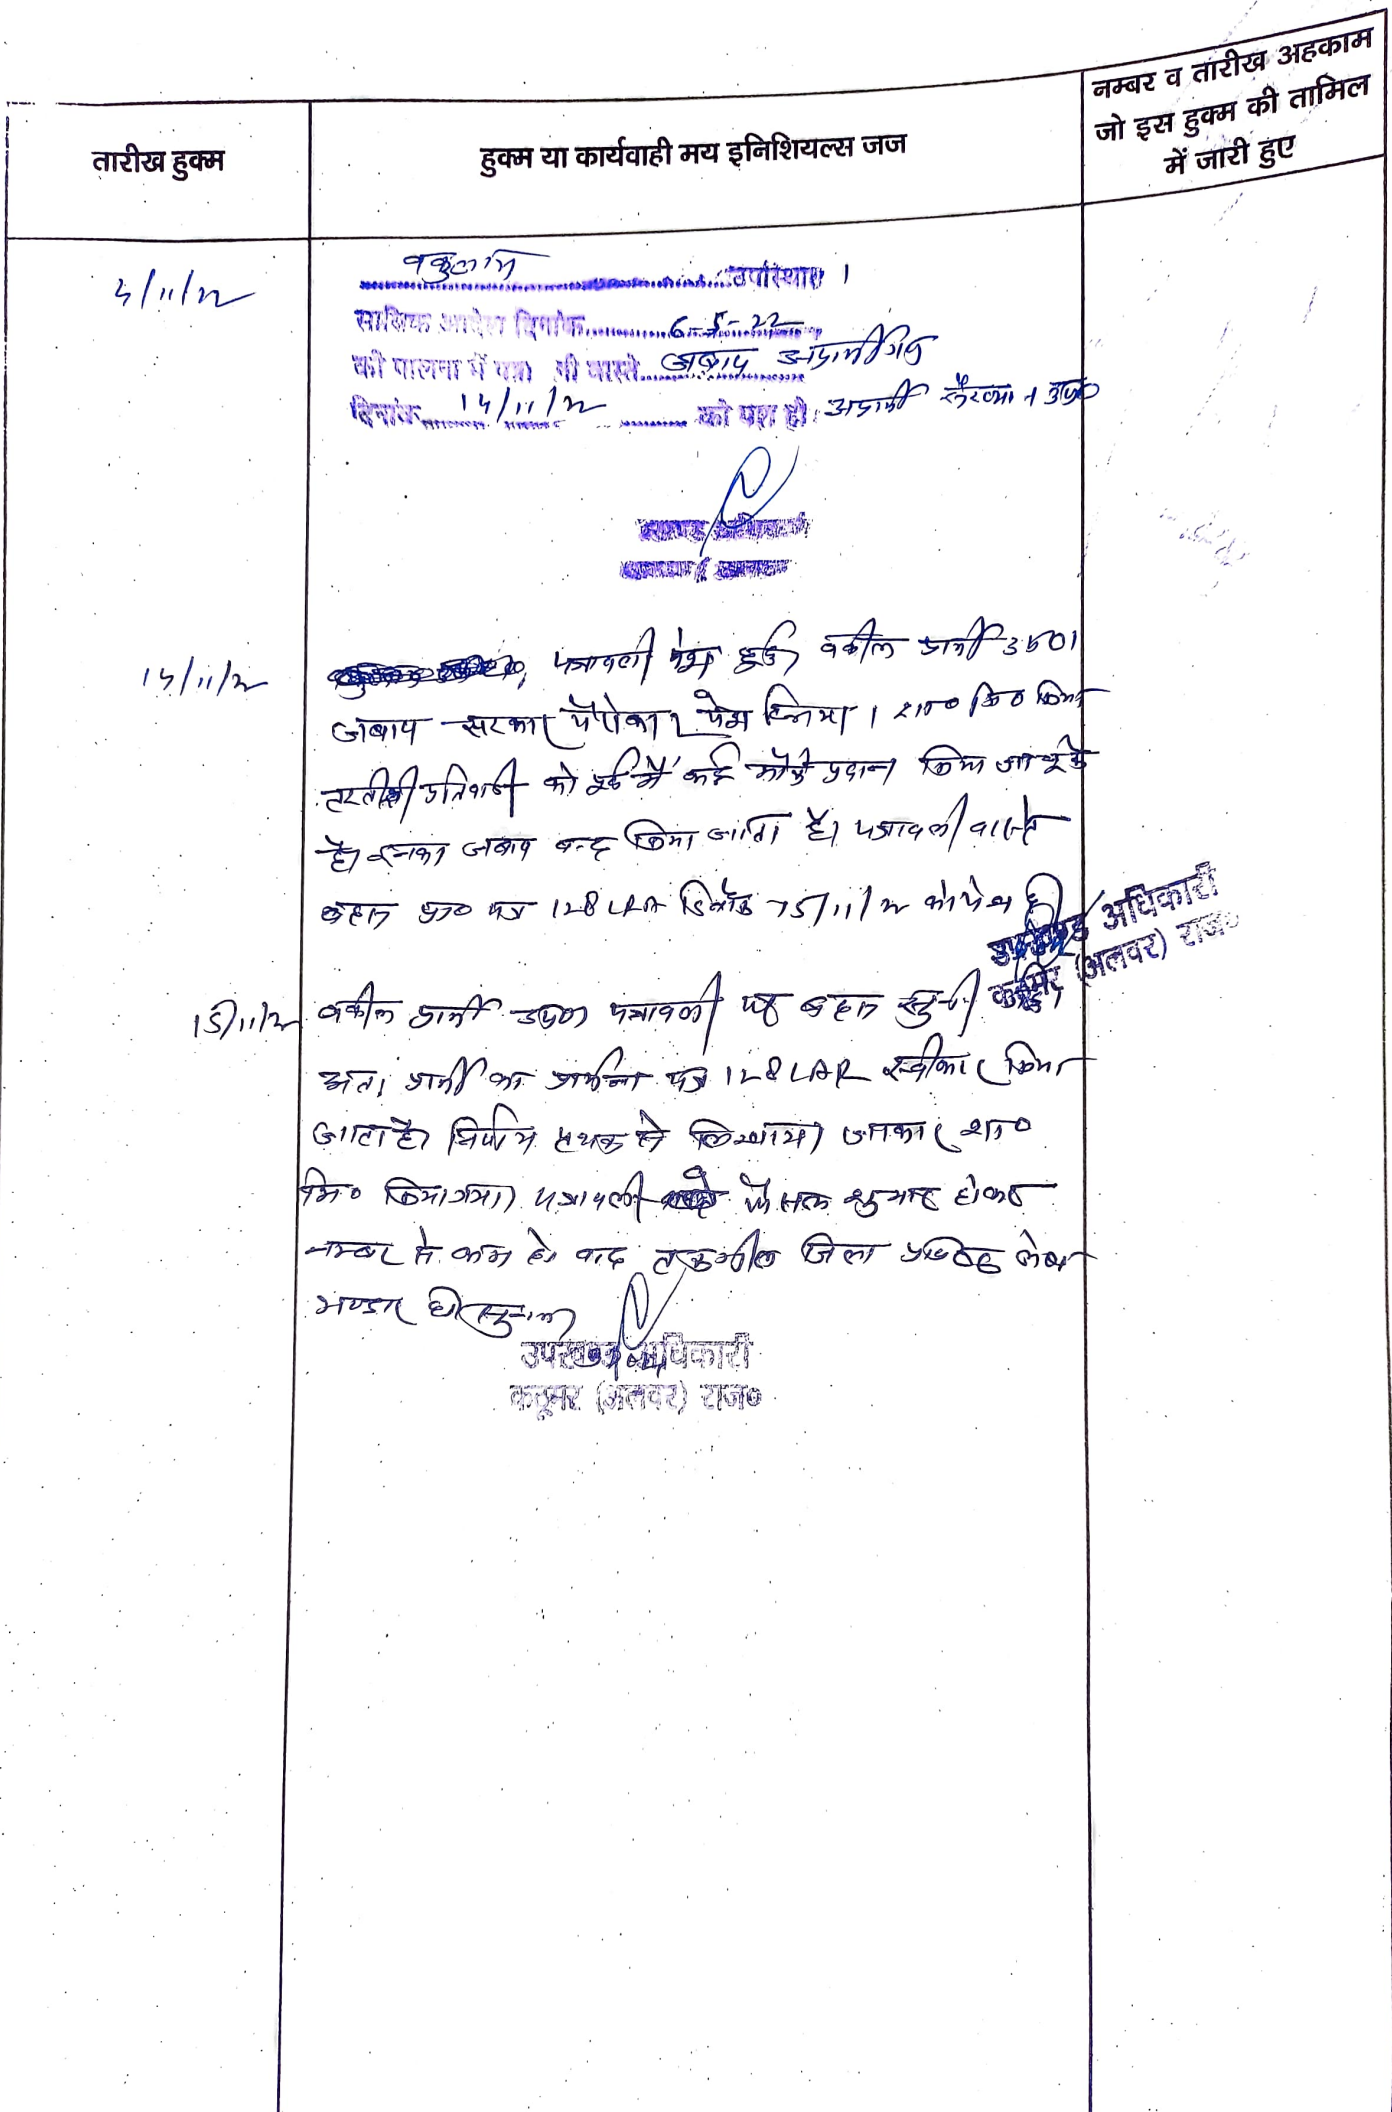 तारीख हुक्म
हुक्म या कार्यवाही मय इनिशियल्स जज
नम्बर व तारीख अहकाम
जो इस हुक्म की तामिल
में जारी हुए
वकुलाम उपस्थित ।
साबिक आदेश दिनांक 6-5-22
की पालना में पत्रा वास्ते जबाव अप्रार्थीगण
दिनांक 14/11/22 को पेश हो अप्रार्थी
14/11/22
पत्रावली पेश हुई वकील प्रार्थी उप०।
जबाव सरकार पैरोकार पेश किया । शा० मि० किया
तरतीबी प्रतिवादी को पूर्व में कई मौके प्रदान किए जा चुके
है। इनका जबाव बन्द किया जाता है। पत्रावली वास्ते
बहस प्रा० पत्र 128 LRA दिनाँक 15/11/22 को पेश हो
उपखण्ड अधिकारी
कठूमर (अलवर) राज०
15/11/22
वकील प्रार्थी उप० पत्रावली पर बहस सुनी गई।
अतः प्रार्थी का प्रार्थना पत्र 128 LRA स्वीकार किया
जाता है। निर्णय पृथक से लिखाया जाकर शा०
मि० किया गया। पत्रावली फैसल शुमार होकर
नम्बर से कम हो बाद तकमील जिला अभिलेख
उपखण्ड अधिकारी
कठूमर (अलवर) राज०